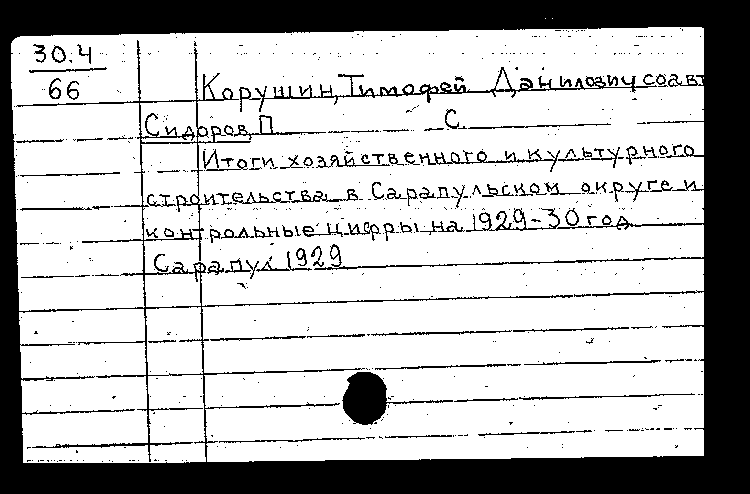 30.4
66
Корушин, Тимофей Данилович соавт
Сидоров, П. С.
Итоги хозяйственного и культурного
строительства в Сарапульском округе и
контрольные цифры на 1929-30 год
Сарапул 1929